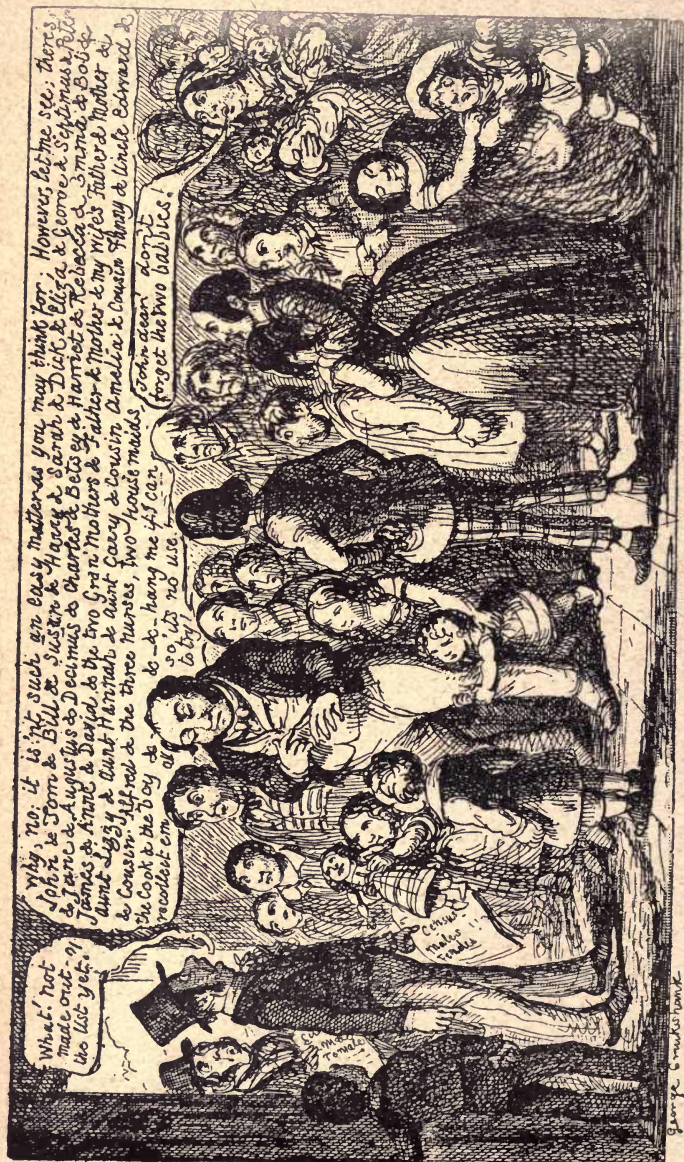 What! not
made out
the list yet?
Why, no, it is'nt such an easy matter as you may think for. However, let me see, there's
John & Tom & Bill & Susan & Harry & Sarah & Dick & Eliza & George & Septimus & Peter
& Jane & Augustus & Decimus & Charles & Betsey & Harriet & Rebecca & Emma & Bob &
James & Anne & David, & the two Gran Mothers & Father & Mother & my wife's Father & Mother &
aunt Lizzy & aunt Hannah & aunt Carry & Cousin Amelia & Cousin Fanny & Uncle Edward &
& Cousin Alfred & the three nurses, two house maids,
the Cook & the boy & & & hang me if I can
recollect em all so its no use
to try
John dear! don't
forget the two babbies!
Census
Males
Females
Males
Females
George Cruikshank